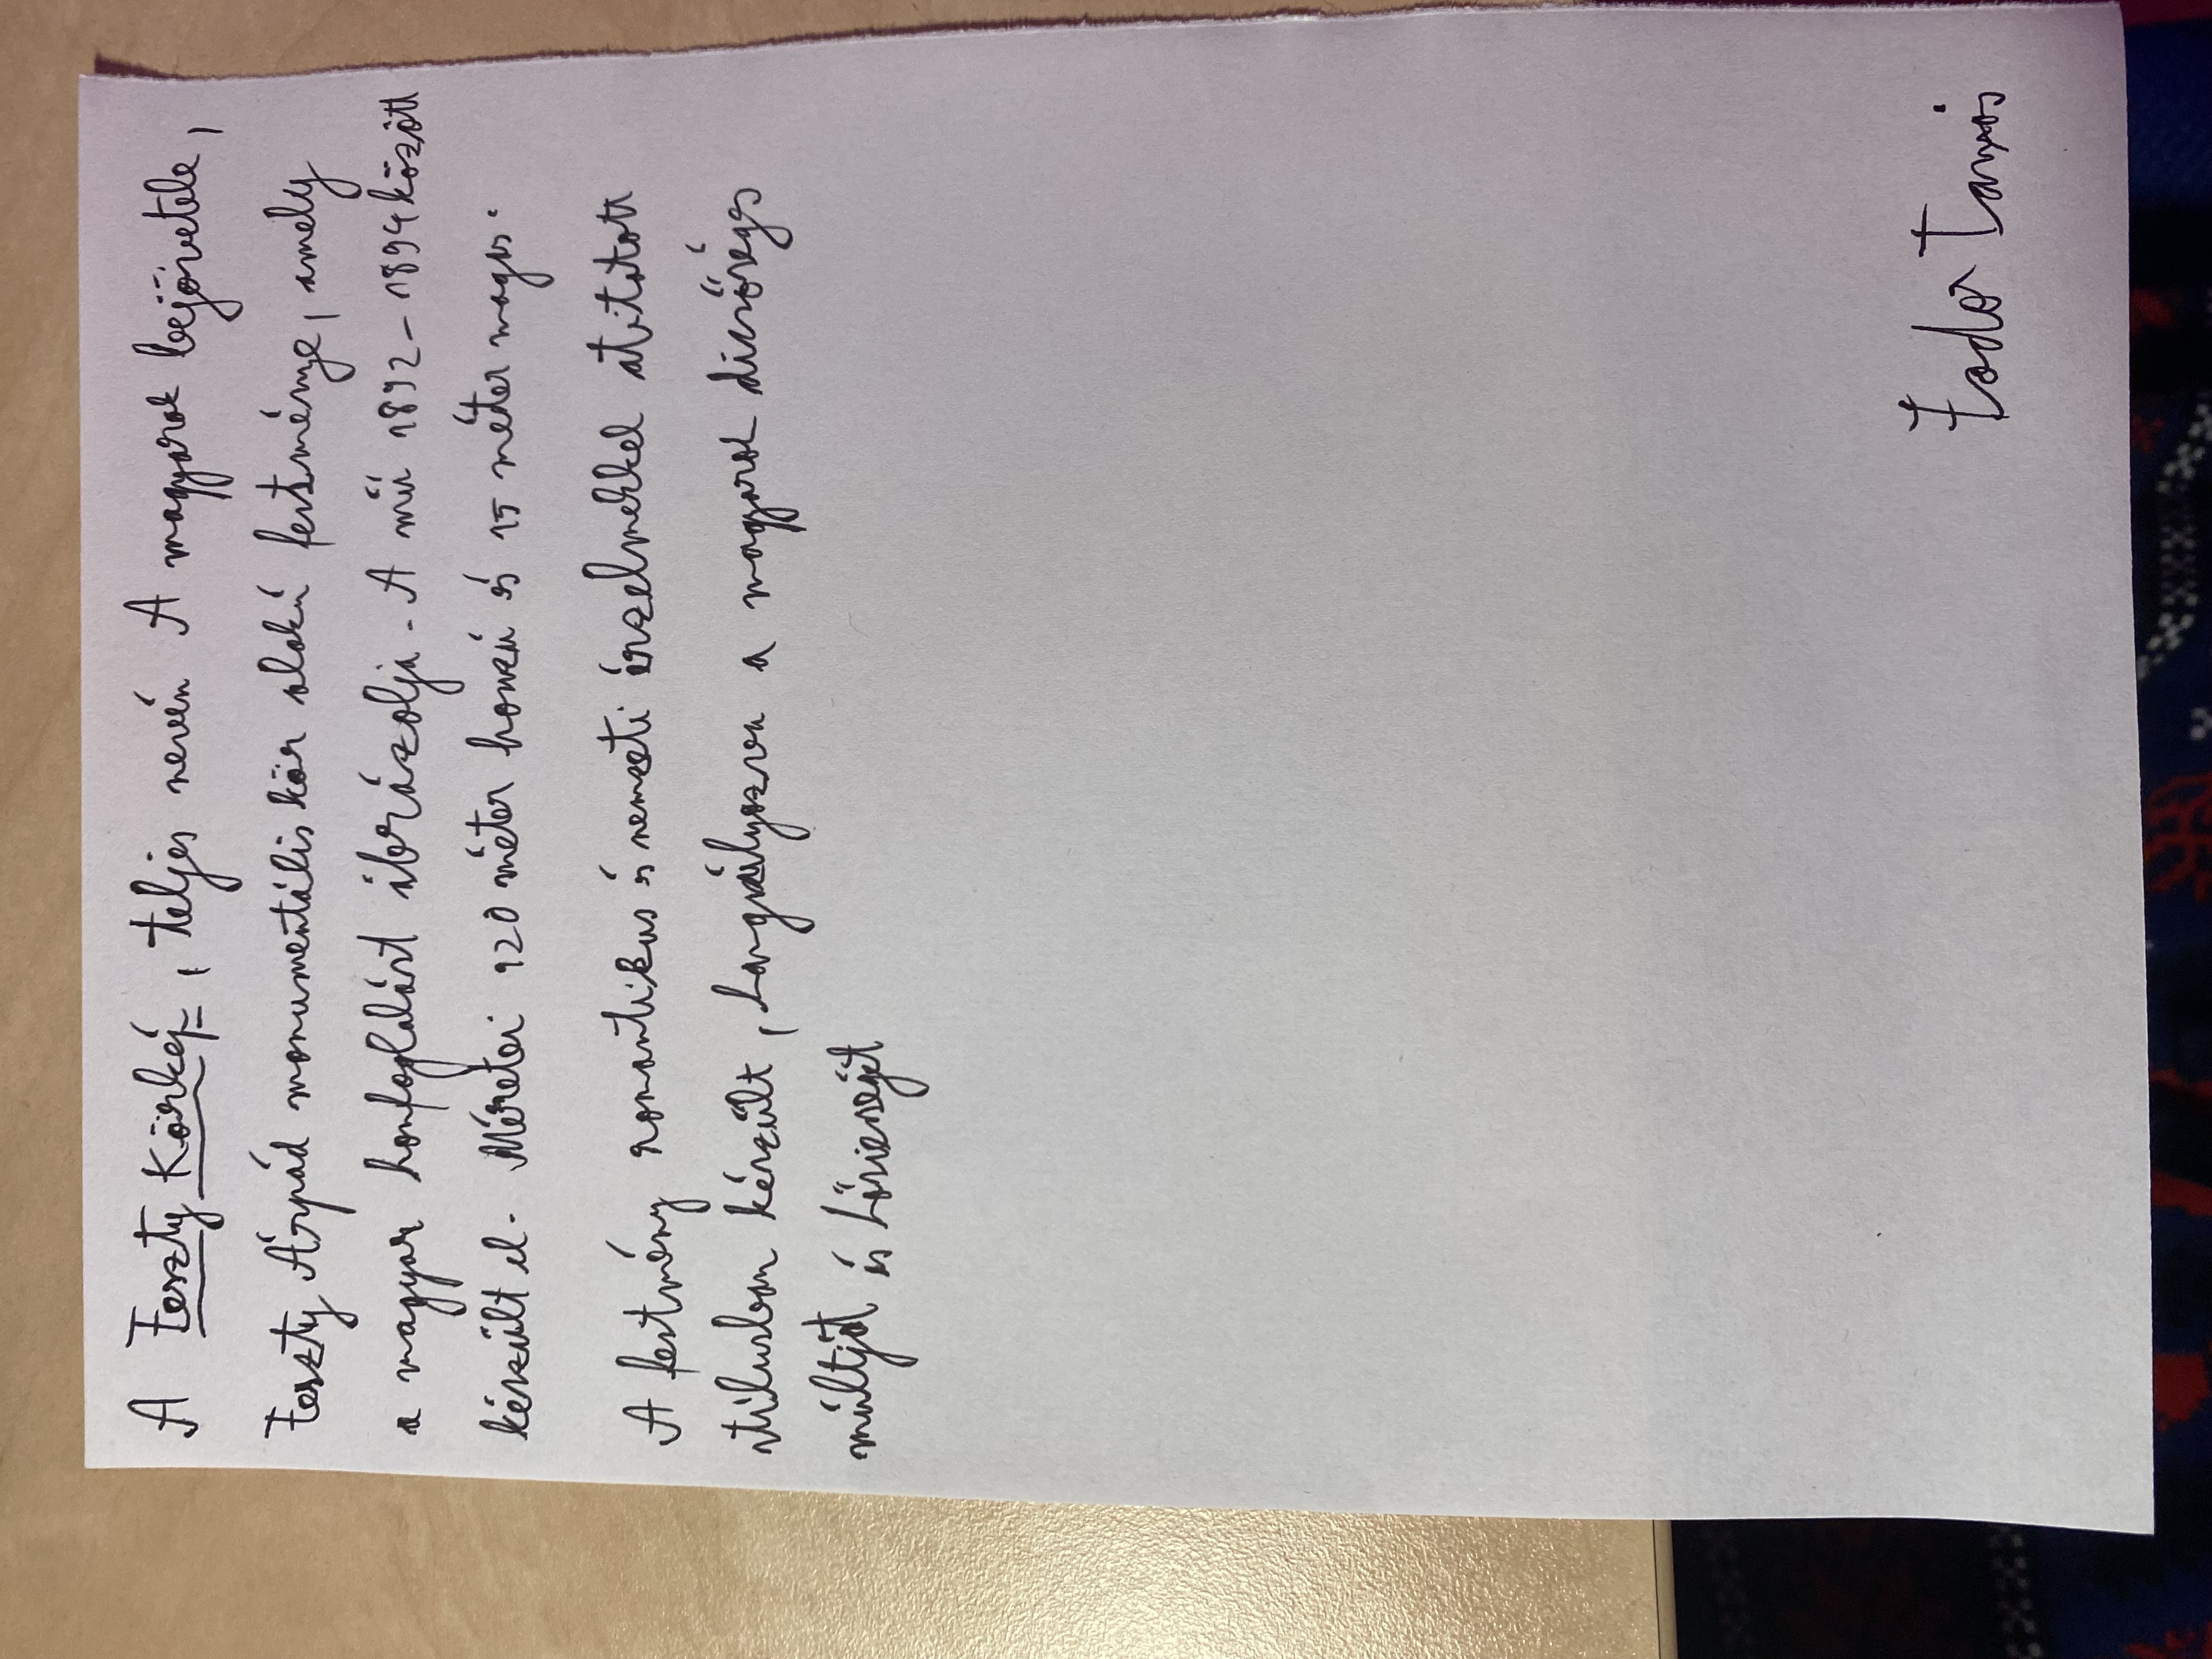 A Feszty Körkép, teljes nevén A magyarok bejövetele,
Feszty Árpád monumentális kör alakú festménye, amely
a magyar honfoglalást ábrázolja. A mű 1892-1894 között
készült el. Méretei 120 méter hosszú és 15 méter magas.
A festmény romantikus és nemzeti érzelmekkel átitatott
stílusban készült, hangsúlyozva a magyarok dicsőséges
múltját és hősiességét
Fodor